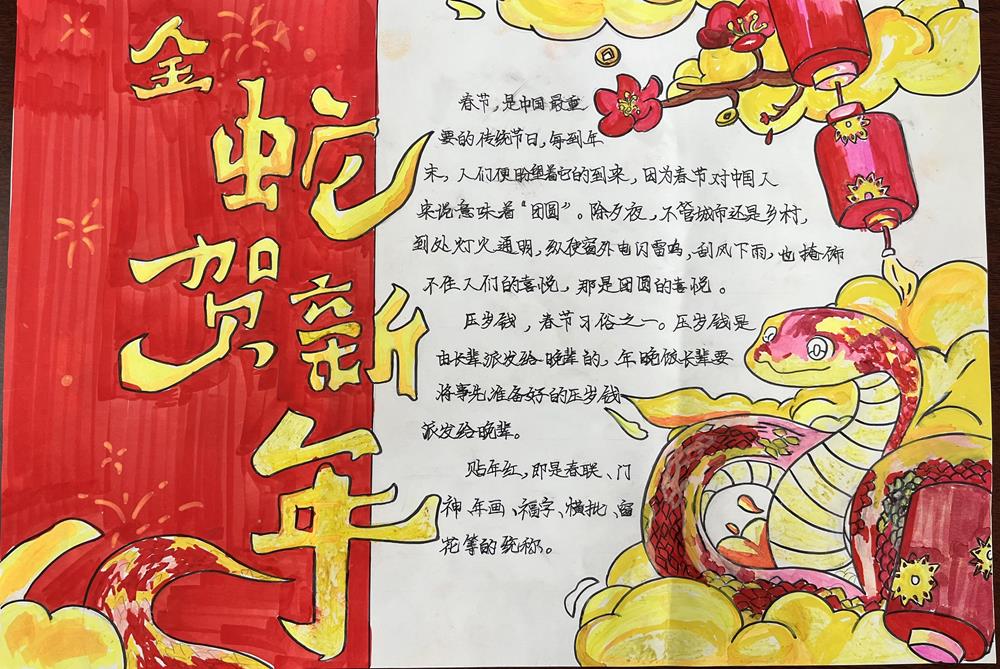 金蛇
贺新
年
春节,是中国最重
要的传统节日,每到年
末,人们便盼望着它的到来,因为春节对中国人
来说意味着“团圆”。除夕夜,不管城市还是乡村,
到处灯火通明,纵使窗外电闪雷鸣,刮风下雨,也掩饰
不住人们的喜悦,那是团圆的喜悦。
压岁钱,春节习俗之一。压岁钱是
由长辈派发给晚辈的,年晚饭长辈要
将事先准备好的压岁钱
派发给晚辈。
贴年红,即是春联、门
神、年画、福字、横批、窗
花等的统称。